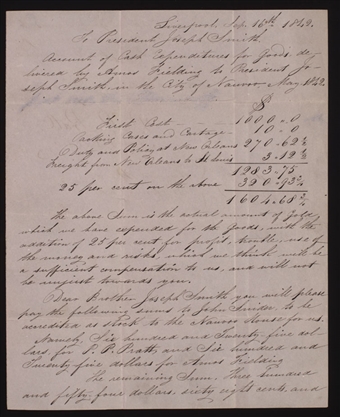 Liverpool, Sep. 16th 1842.
To President Joseph Smith.
Account of Cash Expenditures for Goods de-
livered by Amos Fielding to President Jo-
seph Smith, in the City of Nauvoo, May 1842.
$
First Cost 1000 . 0
Packing Cases and Cartage 10 . 0
Duty and Policy at New Orleans 270 . 62½
Freight from New Orleans to St Louis 3 . 12½
1283 . 75
25 per cent on the above 320 . 93¾
1604 . 68¾
The above Sum is the actual amount of Gold
which we have expended for the goods, with the
addition of 25 per cent for profit, trouble, use of
the money and risks, which we think will be
a sufficient compensation to us, and will not
be unjust towards you.
Dear Brother Joseph Smith you will please
pay the following sums to John Snider, to be
accredited as Stock to the Nauvoo House for us.
Namely, Six hundred and Twenty five dol
lars for P. P. Pratt, and Six hundred and
Twenty five dollars for Amos Fielding
The remaining Sum, Three hundred
and fifty four dollars, sixty eight cents, and